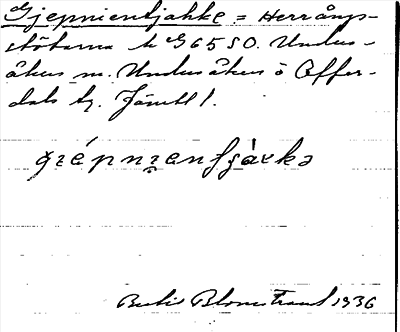 Gjepnientjahke = Herrångs-
stötarna k G6550. Unders-
åkers m. Undersåkers o Offer-
dals tg. Jämtl.
Bertil Blomstrand 1936